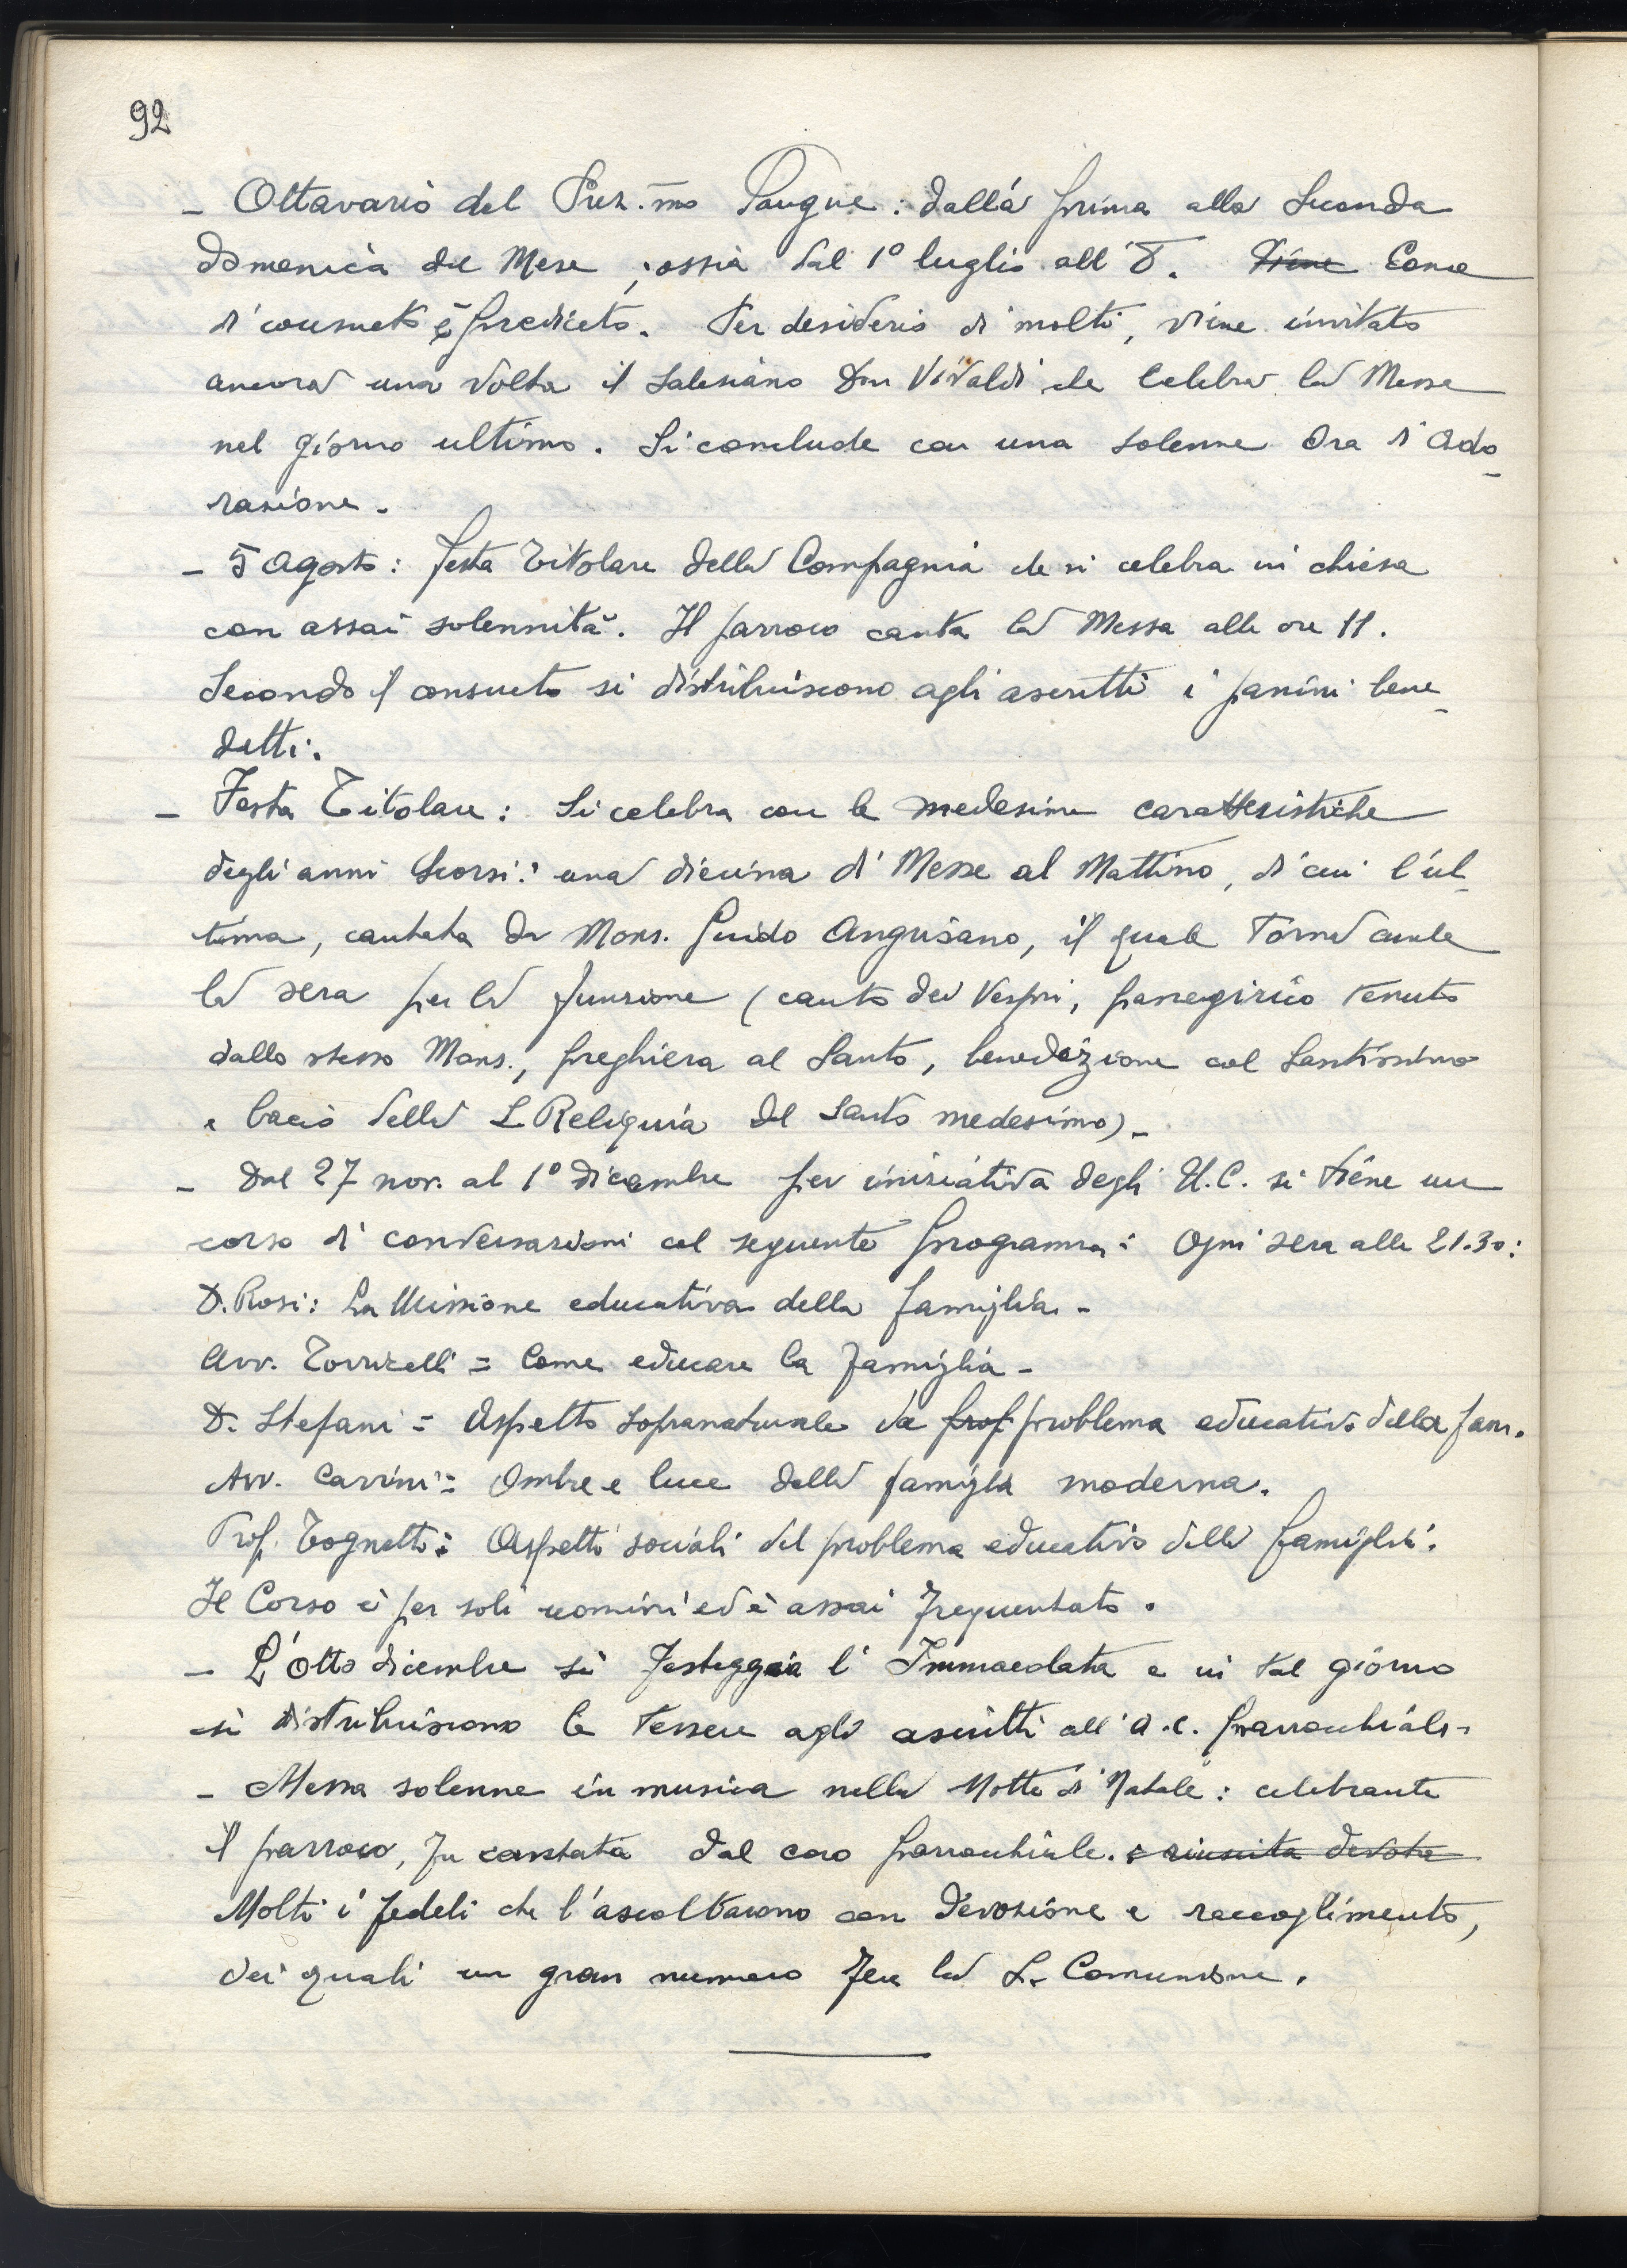 92
- Ottavario del Prez.mo Sangue: dalla prima alla seconda
domenica del Mese, ossia dal 1° luglio all'8. Viene Come
di consueto è predicato. Per desiderio di molti, viene invitato
ancora una volta il salesiano Don Vivaldi che celebra la Messa
nel giorno ultimo. Si conclude con una solenne Ora d'Ado-
razione.
- 5 Agosto: festa titolare della Compagnia che si celebra in chiesa
con assai solennità. Il parroco canta la Messa alle ore 11.
Secondo il consueto si distribuiscono agli ascritti i panini bene-
detti.
- Festa Titolare: Si celebra con le medesime caratteristiche
degli anni scorsi: una diecina di Messe al Mattino, di cui l'ul-
tima, cantata da Mons. Guido Angrisano, il quale torna anche
la sera per la funzione (canto dei Vespri, panegirico tenuto
dallo stesso Mons., preghiera al Santo, benedizione col Santissimo
e bacio della S. Reliquia del Santo medesimo).-
- Dal 27 nov. al 1° dicembre per iniziativa degli U.C. si tiene un
corso di conversazioni col seguente programma: Ogni sera alle 21.30:
D. Rosi: La Missione educativa della famiglia.-
Avv. Torricelli = Come educare la famiglia -
D. Stefani = Aspetto sopranaturale de prof problema educativo della fam.
Avv. Carrini = Ombre e luce della famiglia moderna.
Prof. Tognetti: Aspetti sociali del problema educativo della famiglia.
Il Corso è per soli uomini ed è assai frequentato.
- L'Otto dicembre si festeggia l'Immacolata e in tal giorno
si distribuiscono le tessere agli ascritti all'A.C. parrocchiale.
- Messa solenne in musica nella Notte di Natale: celebrante
il parroco, fu cantata dal coro parrocchiale. e riuscita devota
Molti i fedeli che l'ascoltarono con devozione e raccoglimento,
dei quali un gran numero fece la S. Comunione.